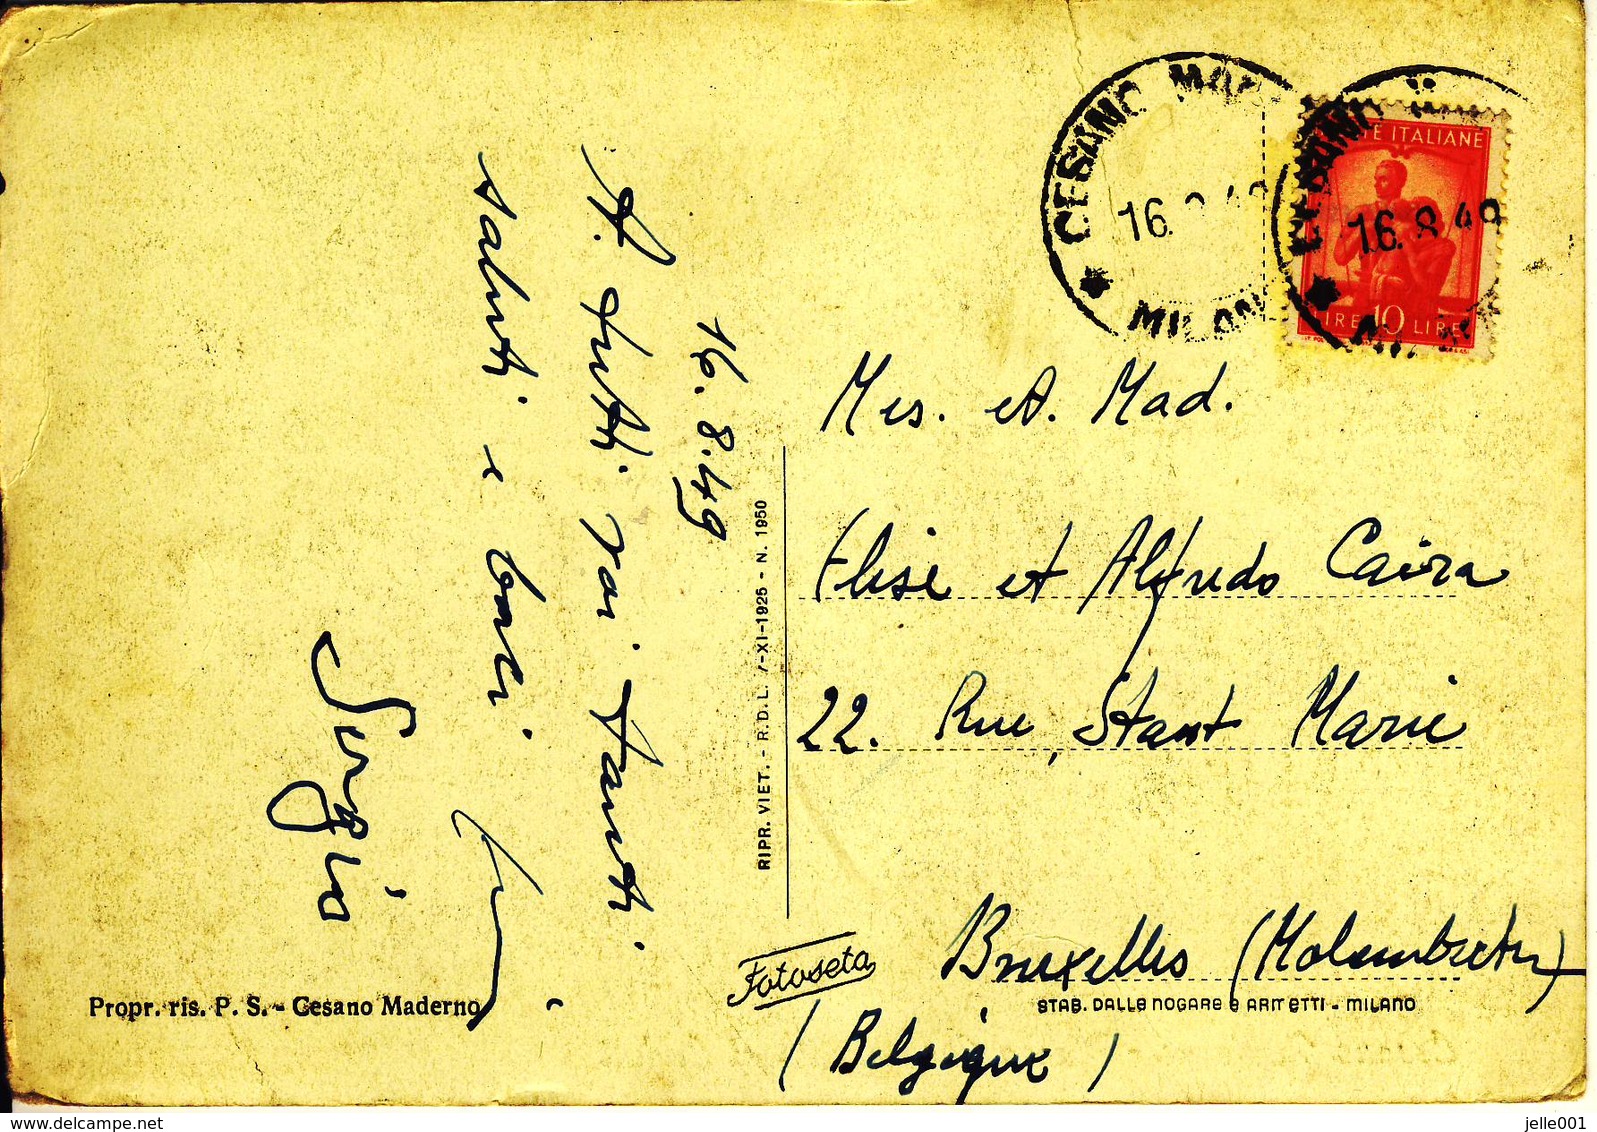 16.8.49
A tutti voi tanti
saluti e baci
Sergio
CESANO MAD
16.8.49
MILANO
CESANO
16.8.49
E ITALIANE
LIRE 10 LIRE
Mes. et. Mad.
Elise et Alfredo Caira
22. Rue, Stant Marie
Bruxelles (Molembeeten)
(Belgique)
RIPR. VIET. - R.D.L. 7-XI-1925 - N. 1950
Fotoseta
Propr. ris. P. S. - Cesano Maderno
STAB. DALLE NOGARE E ARMETTI - MILANO
delcampe.net
jelle001